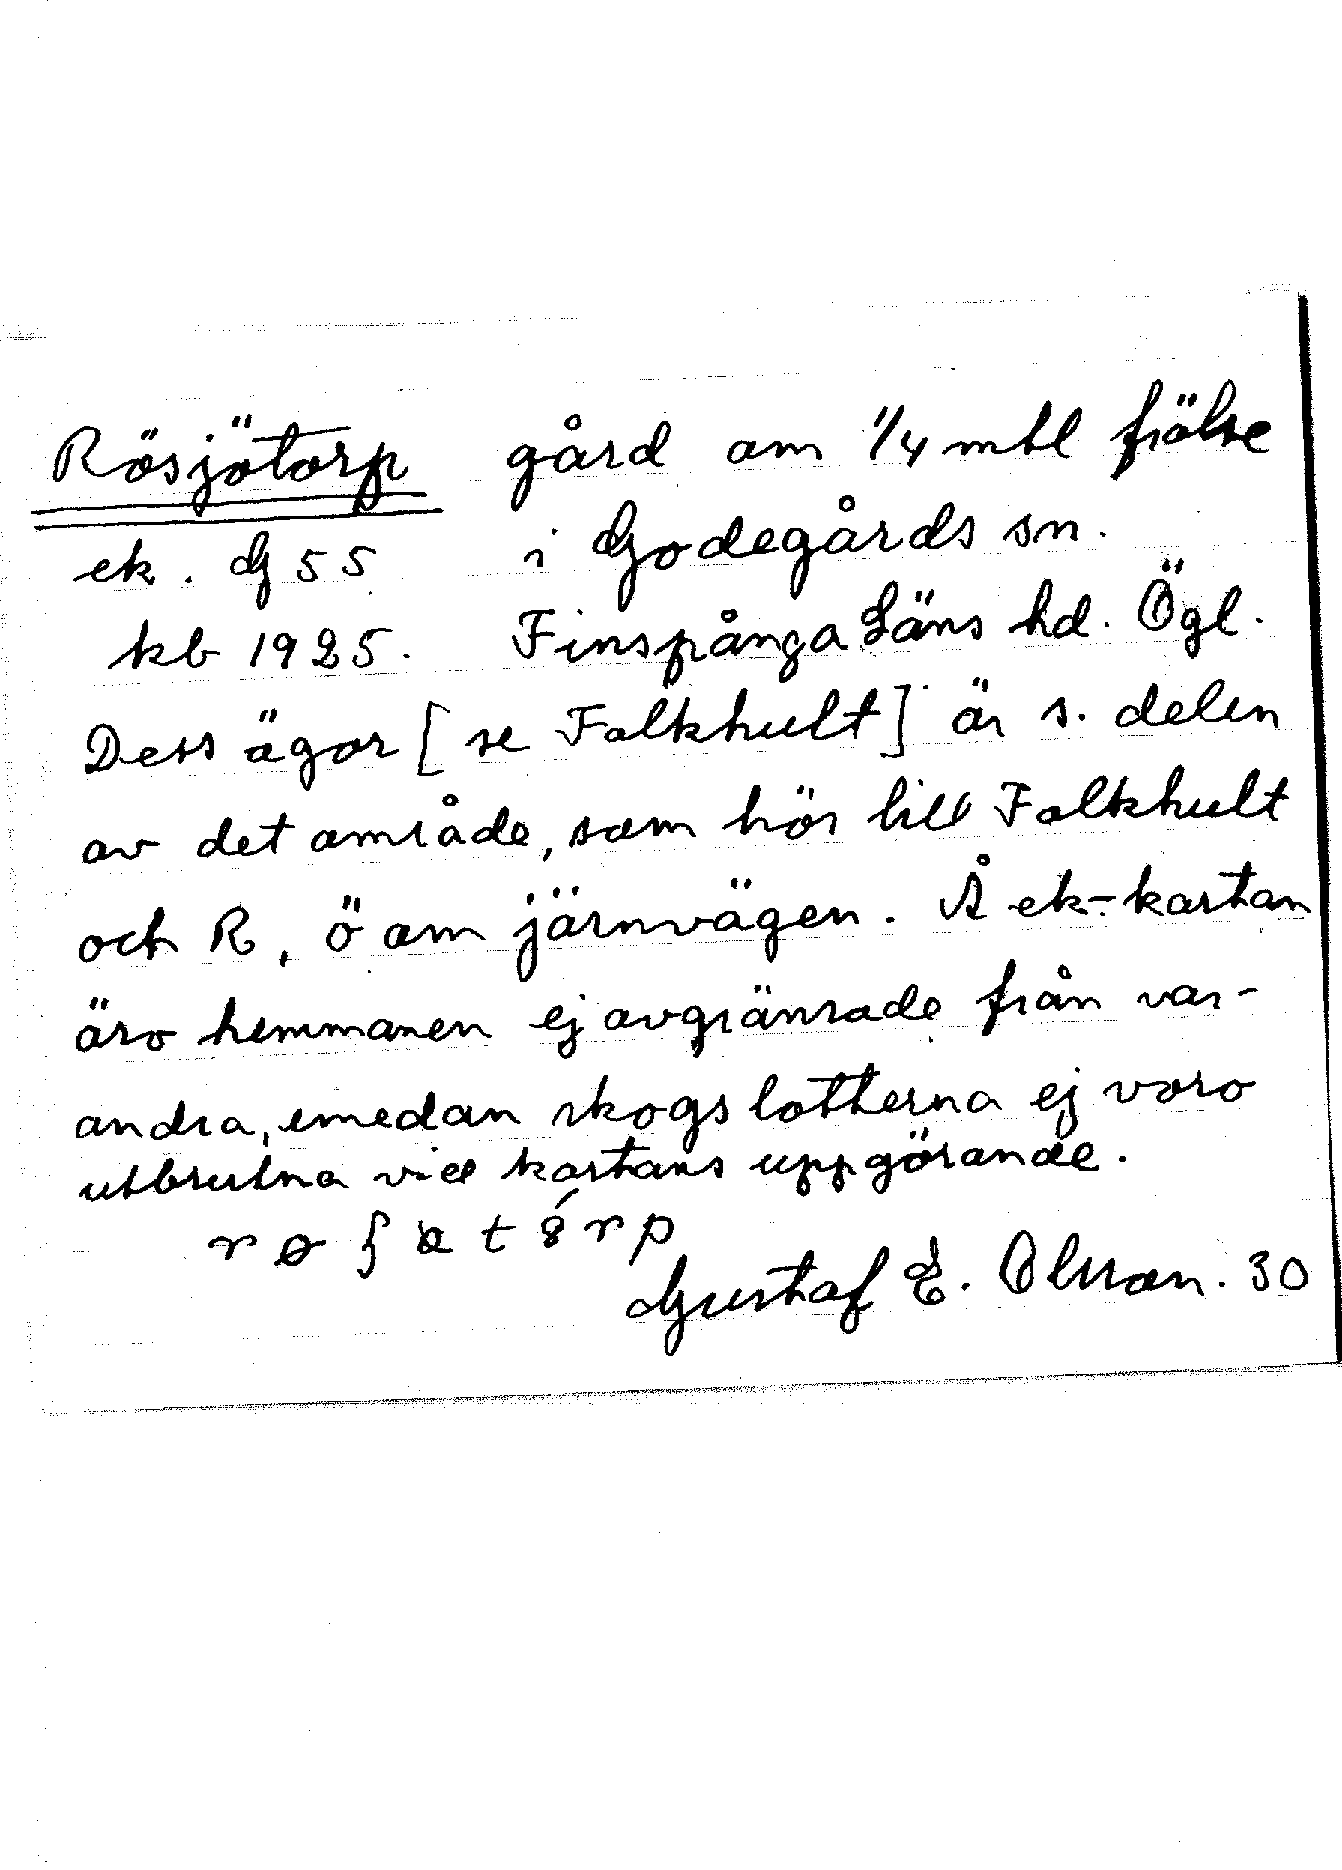 Rösjötorp gård om 1/4 mtl frälse
ek. G 55 i Godegårds sn.
kb 1925. Finspånga Läns hd. Ögl.
Dess ägor [se Falkhult] är s. delen
av det område, som hör till Falkhult
och R, ö om järnvägen. Å ek-kartan
äro hemmanen ej avgränsade från var-
andra, emedan skogslotterna ej voro
utbrutna vid kartans uppgörande.
Gustaf E. Olsson. 30